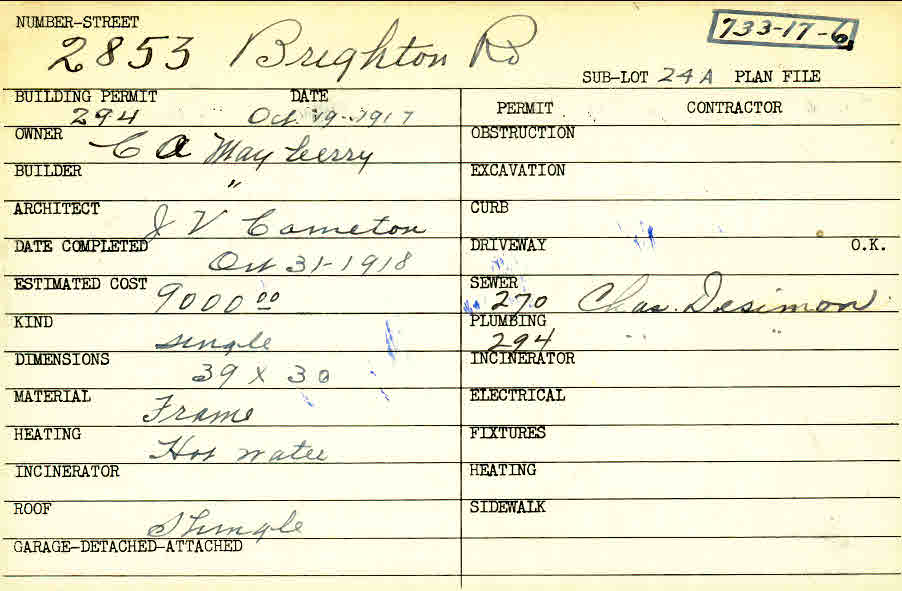 NUMBER-STREET
2853 Brighton Rd
733-17-6
SUB-LOT 24A PLAN FILE
BUILDING PERMIT DATE
294 Oct 19-1917
OWNER
C A Mayberry
BUILDER
"
ARCHITECT
J V Cameton
DATE COMPLETED
Oct 31-1918
ESTIMATED COST
9000 00
KIND
single
DIMENSIONS
39 x 30
MATERIAL
Frame
HEATING
Hot water
INCINERATOR
ROOF
Shingle
GARAGE-DETACHED-ATTACHED
PERMIT CONTRACTOR
OBSTRUCTION
EXCAVATION
CURB
DRIVEWAY O.K.
SEWER
270 Chas. Desimon
PLUMBING
294 " "
INCINERATOR
ELECTRICAL
FIXTURES
HEATING
SIDEWALK